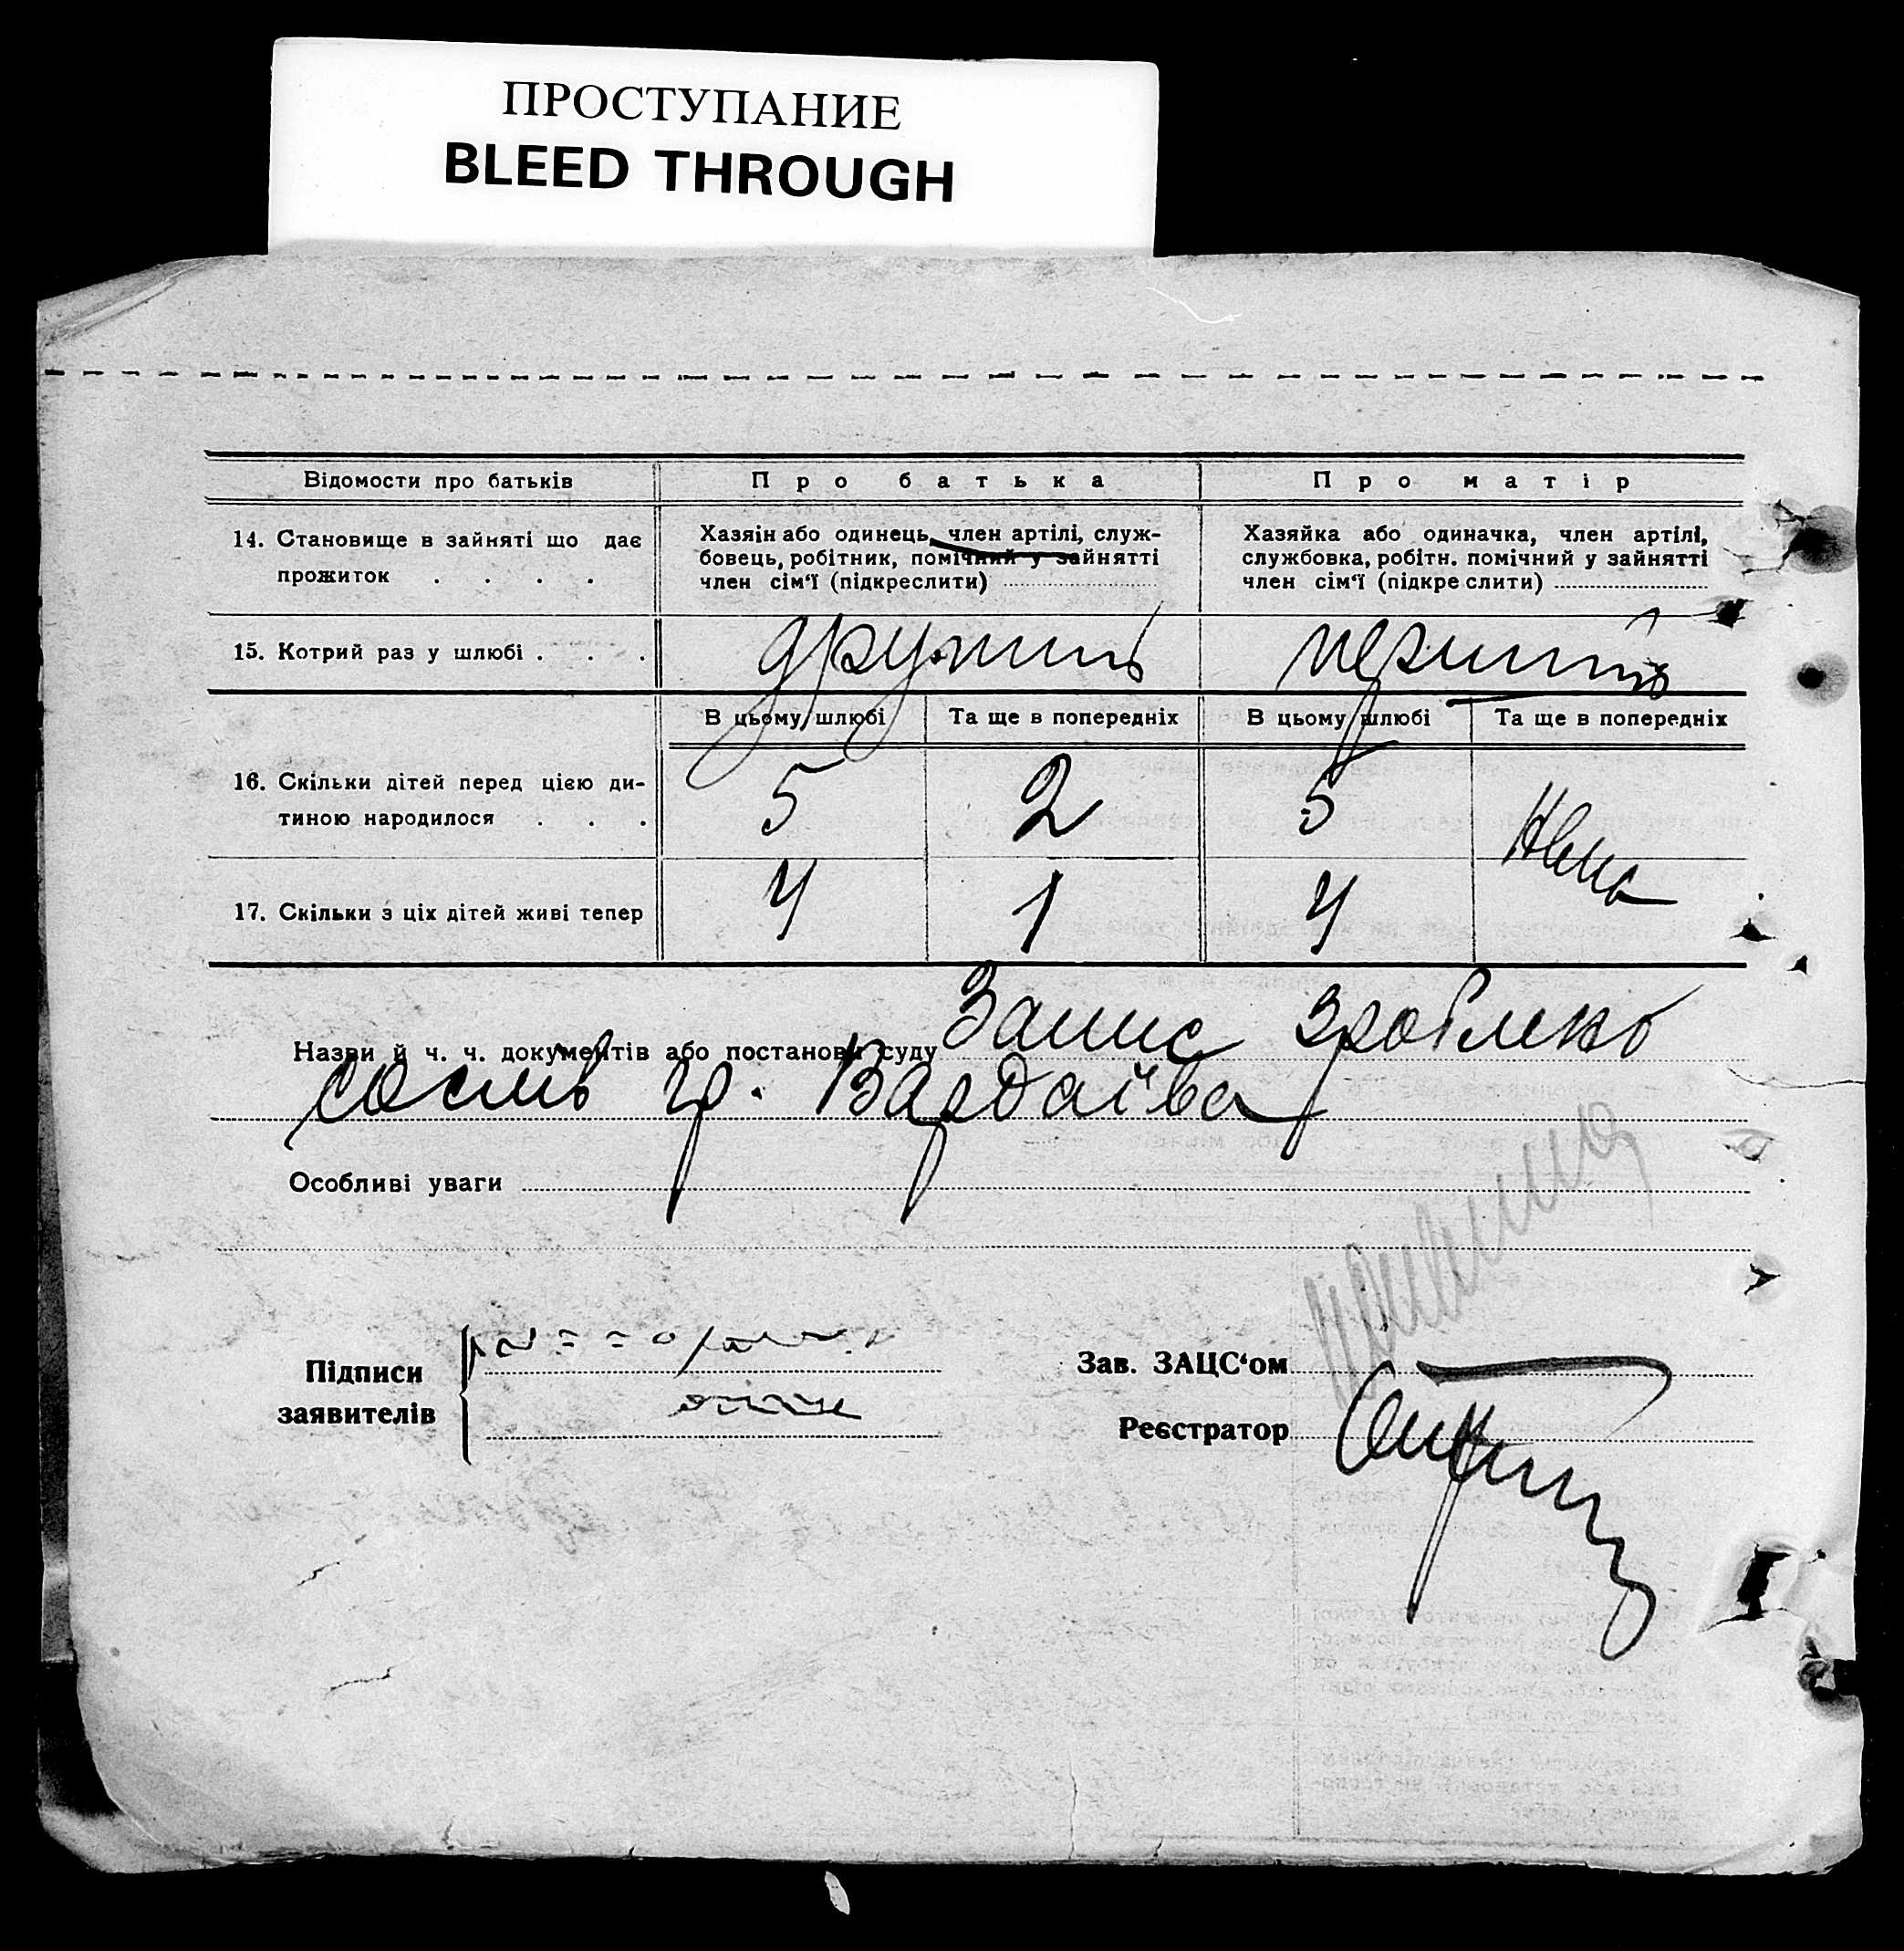 ПРОСТУПАНИЕ
BLEED THROUGH
Відомости про батьків
Про батька
Про матір
14. Становище в зайняті що дає
прожиток . . . .
Хазяїн або одинець, член артілі, служ-
бовець, робітник, помічний у зайнятті
член сім'ї (підкреслити)
Хазяйка або одиначка, член артілі,
службовка, робітн. помічний у зайнятті
член сім'ї (підкреслити)
15. Котрий раз у шлюбі . . .
другий
перший
В цьому шлюбі
Та ще в попередніх
В цьому шлюбі
Та ще в попередніх
16. Скільки дітей перед цією ди-
тиною народилося . . .
5
2
5
Нема
17. Скільки з ціх дітей живі тепер
4
1
4
Назви й ч. ч. документів або постанови суду Запис зроблено
гр.
Особливі уваги
Підписи
заявителів
Зав. ЗАЦС'ом
Реєстратор